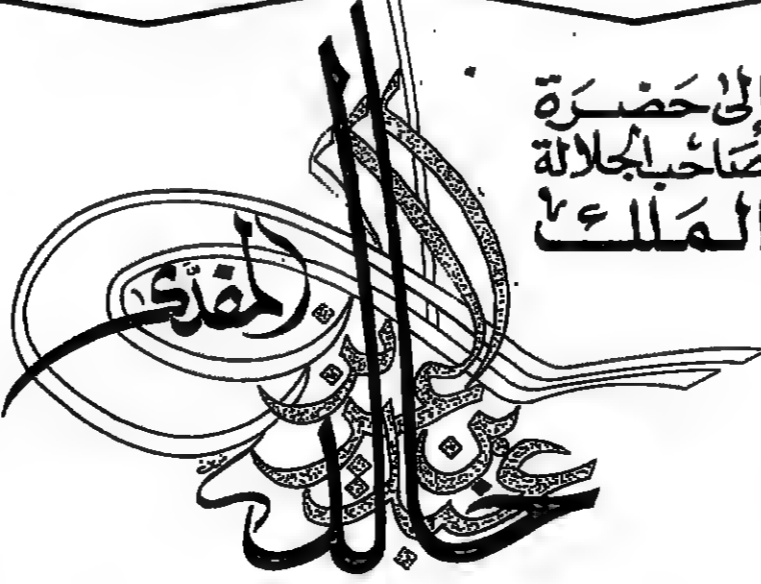 إلى حَضرَة
صَاحب الجلالة
المَلك
خالد
بن
عبد العزيز
المفدّى